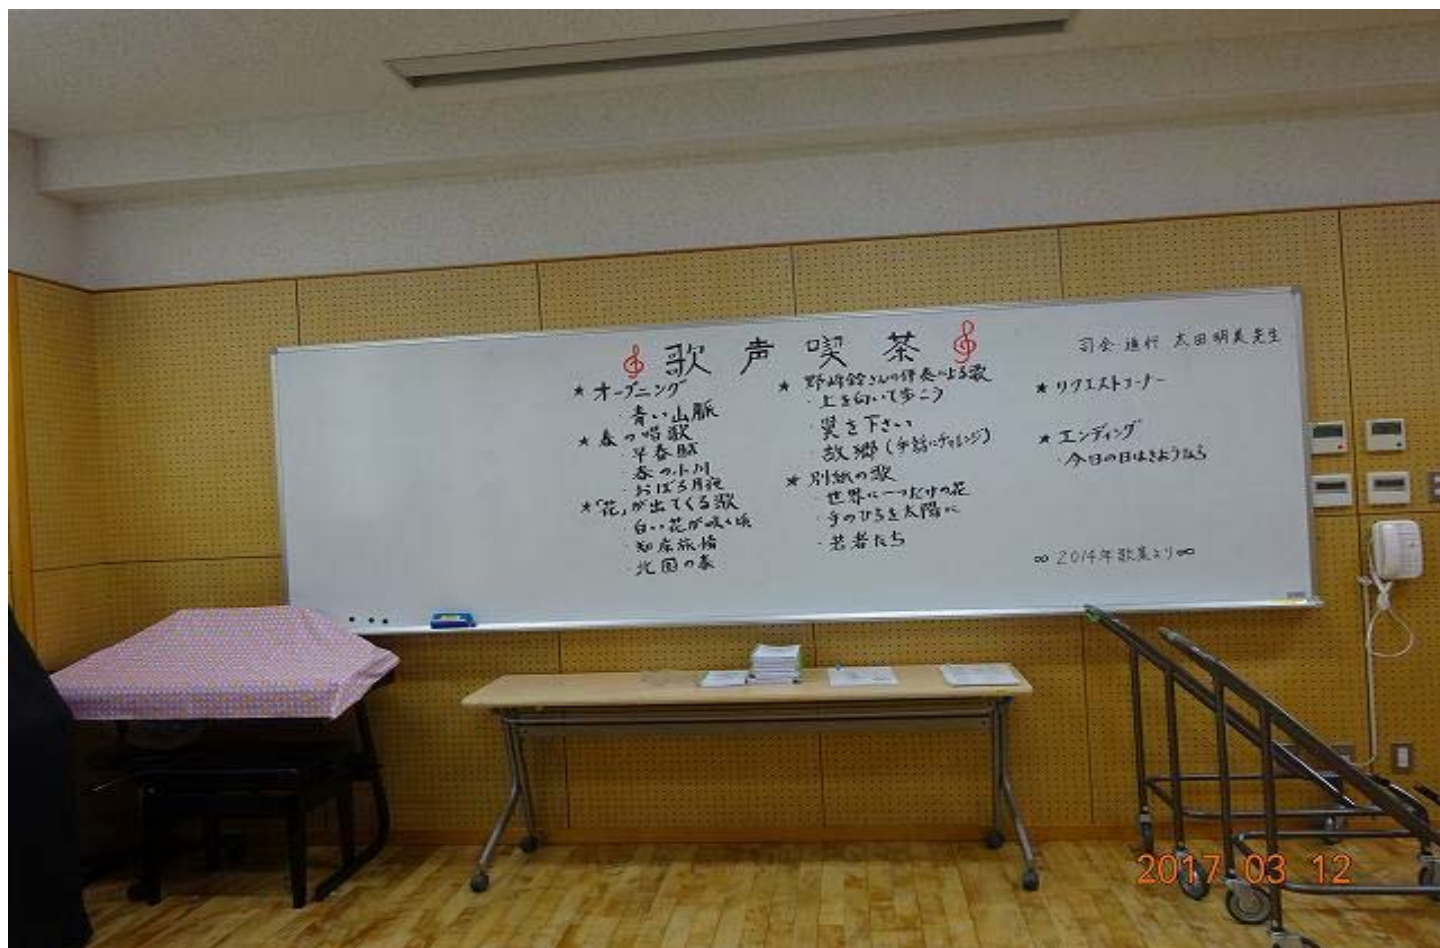 歌声喫茶
司会進行 太田明美先生
★ オープニング
・青い山脈
★ 春の唱歌
・早春賦
・春の小川
・おぼろ月夜
★「花」が出てくる歌
・白い花が咲く頃
・知床旅情
・北国の春
★ 野崎鈴さんの伴奏による歌
・上を向いて歩こう
・翼を下さい
・故郷(手話にチャレンジ)
★ 別紙の歌
・世界に一つだけの花
・手のひらを太陽に
・若者たち
★ リクエストコーナー
★ エンディング
・今日の日はさようなら
∞ 2014年歌集より ∞
2017 03 12